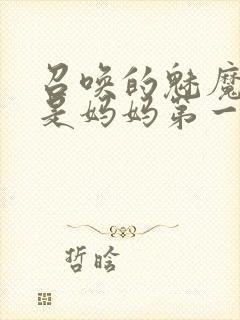 召唤的魅魔
是妈妈第一
哲晗